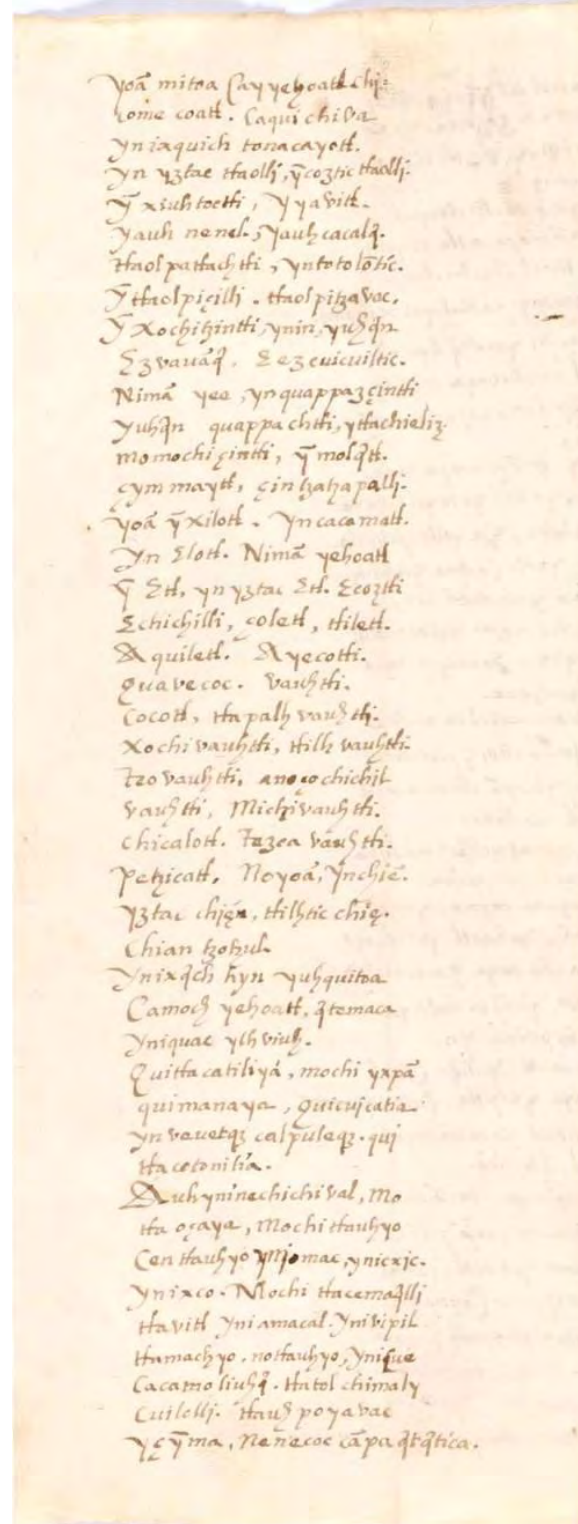 Yoã mitoa Ca yyehoatl chi
come coatl. Caqui chiva
Yn ixquich tonacayotl.
Yn yztac tlaolli, ỹ coztic tlaolli.
Ỹ xiuhtoctli, Y yavitl.
Yauh nenel, Yauhcacalq̃.
tlaolpatlachtli, yntotolõtic.
Ỹ tlaolpiçilli. tlaolpitzavac.
Ỹ Xochitzintli, ynin, yuhq̃n
Ezvavãq̃. Eezcuicuiltic.
Nimã yee, yn quappazçintli
Yuhq̃n quappachtli, ytlachieliz
momochiçintli, ỹ molq̃tl.
çymmaytl, çintzatzapalli.
yoã ỹ xilotl. Yn cacamatl.
Yn Elotl. Nimã yehoatl
ỹ Etl, yn yztac Etl. Ecoztli
Echichilli, çoletl, tliletl.
Aquiletl. Ayecotli.
Quavecoc. Vauhtli.
Cocotl, tlapalhvauhtli.
Xochivauhtli, tlilhvauhtli.
tzovauhtli, anoço chichil
vauhtli, Michivauhtli.
Chicalotl. tezca vauhtli.
Petzicatl. No yoã, Ynchiẽ.
Yztac chiẽn, tlilhtic chiẽ.
Chian tzotzul
Ynixq̃ch hỹn yuhquitoa
Camoch yehoatl, q̃temaca
Yniquac ylhviuh.
Quitlacatiliyã, mochi yxpã
quimanaya, Quicuicatia
yn vevetq̃z calpuleq̃z. qui
tlacotonilia.
Auh yninechichival, mo
tla oçaya, Mochi tlauhyo
Cen tlauhyo ynjomac, ynicxic.
Ynixco. Mochi tlacemaq̃lli
tlavitl Yniamacal. Ynivipil
tlamachyo. no tlauhyo, Ynicue
Cacamoliuhq̃. tlatolchimaly
Cuilolli. tlauhpoyavac
yç ỹma, Nenecoc cãpa q̃tq̃tica.